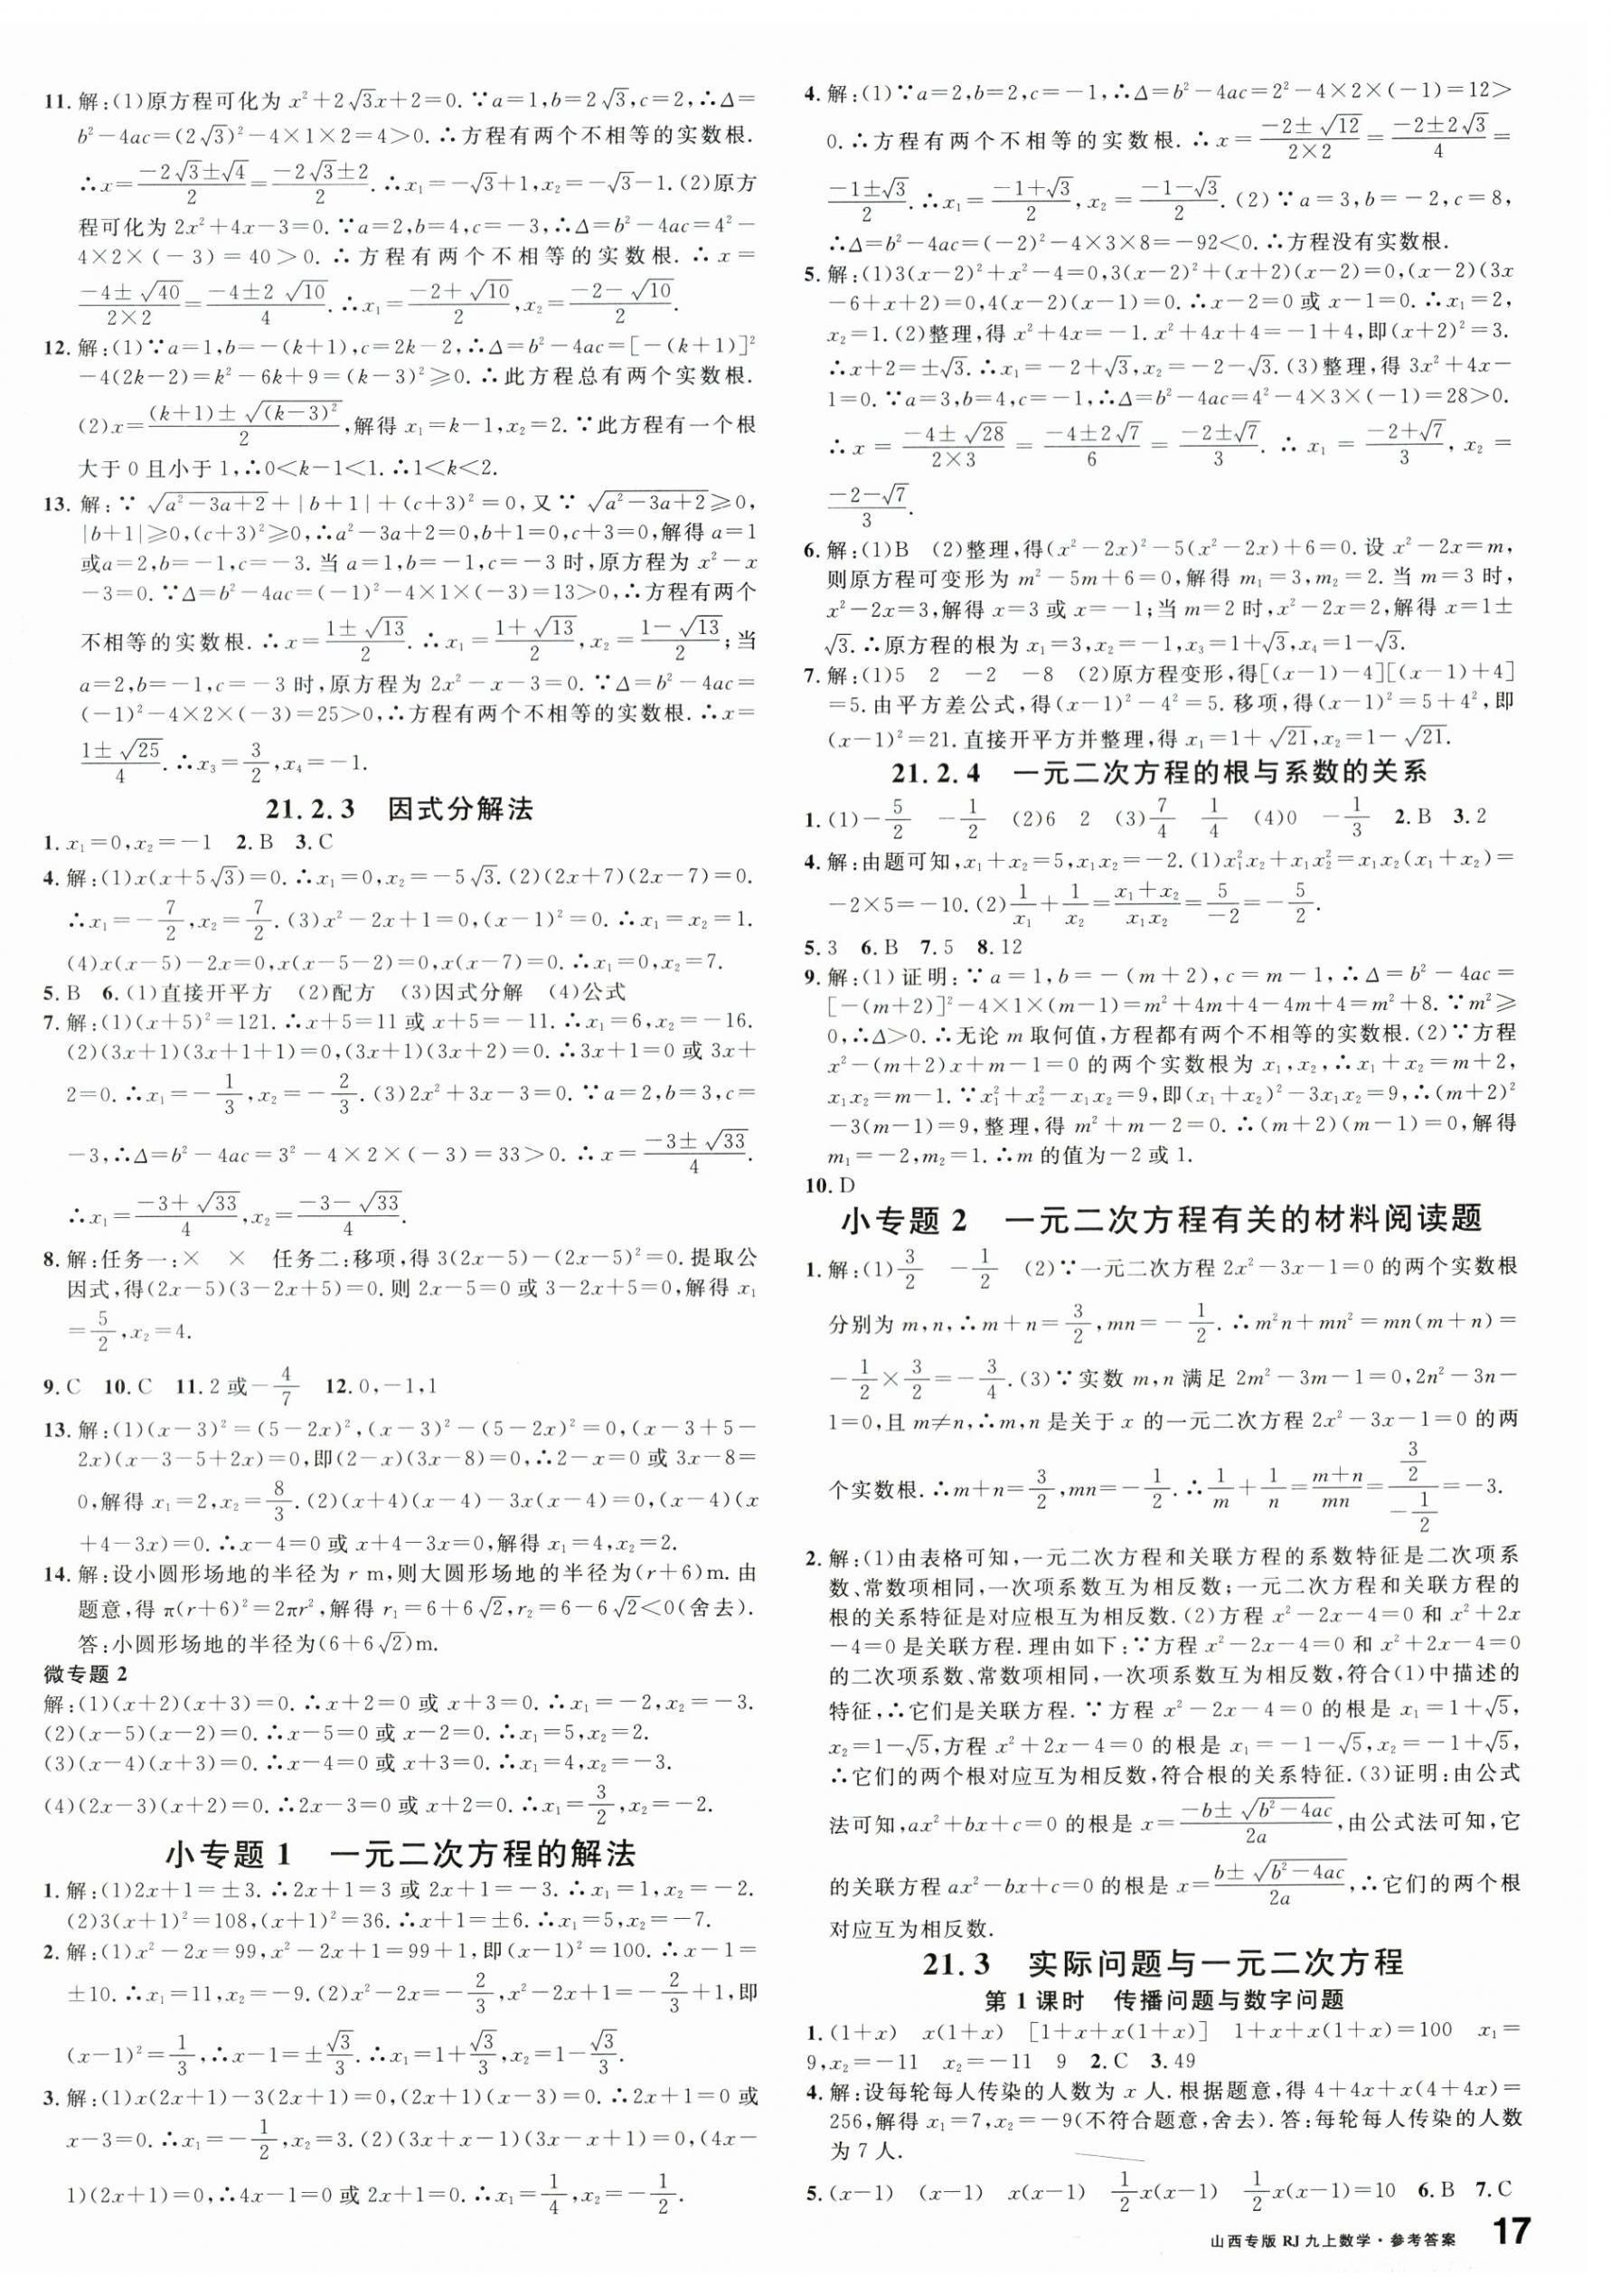 11. 解:(1)原方程可化为 x²+2√3x+2=0. ∵a=1,b=2√3,c=2,∴Δ=
b²-4ac=(2√3)²-4×1×2=4>0. ∴方程有两个不相等的实数根.
∴x=(-2√3±√4)/2=(-2√3±2)/2. ∴x₁=-√3+1,x₂=-√3-1. (2)原方
程可化为 2x²+4x-3=0. ∵a=2,b=4,c=-3,∴Δ=b²-4ac=4²-
4×2×(-3)=40>0. ∴方程有两个不相等的实数根. ∴x=
(-4±√40)/(2×2)=(-4±2√10)/4. ∴x₁=(-2+√10)/2,x₂=(-2-√10)/2.
12. 解:(1)∵a=1,b=-(k+1),c=2k-2,∴Δ=b²-4ac=[-(k+1)]²
-4(2k-2)=k²-6k+9=(k-3)²≥0. ∴此方程总有两个实数根.
(2)x=((k+1)±√(k-3)²)/2,解得 x₁=k-1,x₂=2. ∵此方程有一个根
大于 0 且小于 1,∴0<k-1<1. ∴1<k<2.
13. 解:∵√(a²-3a+2)+|b+1|+(c+3)²=0,又∵√(a²-3a+2)≥0,
|b+1|≥0,(c+3)²≥0,∴a²-3a+2=0,b+1=0,c+3=0,解得 a=1
或a=2,b=-1,c=-3. 当 a=1,b=-1,c=-3 时,原方程为 x²-x
-3=0. ∵Δ=b²-4ac=(-1)²-4×1×(-3)=13>0,∴方程有两个
不相等的实数根. ∴x=(1±√13)/2. ∴x₁=(1+√13)/2,x₂=(1-√13)/2;当
a=2,b=-1,c=-3 时,原方程为 2x²-x-3=0. ∵Δ=b²-4ac=
(-1)²-4×2×(-3)=25>0,∴方程有两个不相等的实数根. ∴x=
(1±√25)/4. ∴x₃=3/2,x₄=-1.
21.2.3 因式分解法
1. x₁=0,x₂=-1 2. B 3. C
4. 解:(1)x(x+5√3)=0. ∴x₁=0,x₂=-5√3. (2)(2x+7)(2x-7)=0.
∴x₁=-7/2,x₂=7/2. (3)x²-2x+1=0,(x-1)²=0. ∴x₁=x₂=1.
(4)x(x-5)-2x=0,x(x-5-2)=0,x(x-7)=0. ∴x₁=0,x₂=7.
5. B 6. (1)直接开平方 (2)配方 (3)因式分解 (4)公式
7. 解:(1)(x+5)²=121. ∴x+5=11 或 x+5=-11. ∴x₁=6,x₂=-16.
(2)(3x+1)(3x+1+1)=0,(3x+1)(3x+2)=0. ∴3x+1=0 或 3x+
2=0. ∴x₁=-1/3,x₂=-2/3. (3)2x²+3x-3=0. ∵a=2,b=3,c=
-3,∴Δ=b²-4ac=3²-4×2×(-3)=33>0. ∴x=(-3±√33)/4.
∴x₁=(-3+√33)/4,x₂=(-3-√33)/4.
8. 解:任务一:× × 任务二:移项,得 3(2x-5)-(2x-5)²=0. 提取公
因式,得(2x-5)(3-2x+5)=0. 则 2x-5=0 或 3-2x+5=0,解得 x₁
=5/2,x₂=4.
9. C 10. C 11. 2 或-4/7 12. 0,-1,1
13. 解:(1)(x-3)²=(5-2x)²,(x-3)²-(5-2x)²=0,(x-3+5-
2x)(x-3-5+2x)=0,即(2-x)(3x-8)=0,∴2-x=0 或 3x-8=
0,解得 x₁=2,x₂=8/3. (2)(x+4)(x-4)-3x(x-4)=0,(x-4)(x
+4-3x)=0. ∴x-4=0 或 x+4-3x=0,解得 x₁=4,x₂=2.
14. 解:设小圆形场地的半径为 r m,则大圆形场地的半径为(r+6)m. 由
题意,得 π(r+6)²=2πr²,解得 r₁=6+6√2,r₂=6-6√2<0(舍去).
答:小圆形场地的半径为(6+6√2)m.
微专题 2
解:(1)(x+2)(x+3)=0. ∴x+2=0 或 x+3=0. ∴x₁=-2,x₂=-3.
(2)(x-5)(x-2)=0. ∴x-5=0 或 x-2=0. ∴x₁=5,x₂=2.
(3)(x-4)(x+3)=0. ∴x-4=0 或 x+3=0. ∴x₁=4,x₂=-3.
(4)(2x-3)(x+2)=0. ∴2x-3=0 或 x+2=0. ∴x₁=3/2,x₂=-2.
小专题 1 一元二次方程的解法
1. 解:(1)2x+1=±3. ∴2x+1=3 或 2x+1=-3. ∴x₁=1,x₂=-2.
(2)3(x+1)²=108,(x+1)²=36. ∴x+1=±6. ∴x₁=5,x₂=-7.
2. 解:(1)x²-2x=99,x²-2x+1=99+1,即(x-1)²=100. ∴x-1=
±10. ∴x₁=11,x₂=-9. (2)x²-2x=-2/3,x²-2x+1=-2/3+1,即
(x-1)²=1/3,∴x-1=±√3/3. ∴x₁=1+√3/3,x₂=1-√3/3.
3. 解:(1)x(2x+1)-3(2x+1)=0,(2x+1)(x-3)=0. ∴2x+1=0 或
x-3=0. ∴x₁=-1/2,x₂=3. (2)(3x+x-1)(3x-x+1)=0,(4x-
1)(2x+1)=0,∴4x-1=0 或 2x+1=0. ∴x₁=1/4,x₂=-1/2.
4. 解:(1)∵a=2,b=2,c=-1,∴Δ=b²-4ac=2²-4×2×(-1)=12>
0. ∴方程有两个不相等的实数根. ∴x=(-2±√12)/(2×2)=(-2±2√3)/4=
(-1±√3)/2. ∴x₁=(-1+√3)/2,x₂=(-1-√3)/2. (2)∵a=3,b=-2,c=8,
∴Δ=b²-4ac=(-2)²-4×3×8=-92<0. ∴方程没有实数根.
5. 解:(1)3(x-2)²+x²-4=0,3(x-2)²+(x+2)(x-2)=0,(x-2)(3x
-6+x+2)=0,4(x-2)(x-1)=0. ∴x-2=0 或 x-1=0. ∴x₁=2,
x₂=1. (2)整理,得 x²+4x=-1. x²+4x+4=-1+4,即(x+2)²=3.
∴x+2=±√3. ∴x₁=-2+√3,x₂=-2-√3. (3)整理,得 3x²+4x-
1=0. ∵a=3,b=4,c=-1,∴Δ=b²-4ac=4²-4×3×(-1)=28>0.
∴x=(-4±√28)/(2×3)=(-4±2√7)/6=(-2±√7)/3. ∴x₁=(-2+√7)/3,x₂=
(-2-√7)/3.
6. 解:(1)B (2)整理,得(x²-2x)²-5(x²-2x)+6=0. 设 x²-2x=m,
则原方程可变形为 m²-5m+6=0,解得 m₁=3,m₂=2. 当 m=3 时,
x²-2x=3,解得 x=3 或 x=-1;当 m=2 时,x²-2x=2,解得 x=1±
√3. ∴原方程的根为 x₁=3,x₂=-1,x₃=1+√3,x₄=1-√3.
7. 解:(1)5 2 -2 -8 (2)原方程变形,得[(x-1)-4][(x-1)+4]
=5. 由平方差公式,得(x-1)²-4²=5. 移项,得(x-1)²=5+4²,即
(x-1)²=21. 直接开平方并整理,得 x₁=1+√21,x₂=1-√21.
21.2.4 一元二次方程的根与系数的关系
1. (1)-5/2 -1/2 (2)6 2 (3)7/4 1/4 (4)0 -1/3 2. B 3. 2
4. 解:由题可知,x₁+x₂=5,x₁x₂=-2. (1)x₁²x₂+x₁x₂²=x₁x₂(x₁+x₂)=
-2×5=-10. (2)1/x₁+1/x₂=(x₁+x₂)/(x₁x₂)=5/(-2)=-5/2.
5. 3 6. B 7. 5 8. 12
9. 解:(1)证明:∵a=1,b=-(m+2),c=m-1,∴Δ=b²-4ac=
[-(m+2)]²-4×1×(m-1)=m²+4m+4-4m+4=m²+8. ∵m²≥
0,∴Δ>0. ∴无论 m 取何值,方程都有两个不相等的实数根. (2)∵方程
x²-(m+2)x+m-1=0 的两个实数根为 x₁,x₂,∴x₁+x₂=m+2,
x₁x₂=m-1. ∵x₁²+x₂²-x₁x₂=9,即(x₁+x₂)²-3x₁x₂=9,∴(m+2)²
-3(m-1)=9,整理,得 m²+m-2=0. ∴(m+2)(m-1)=0,解得
m₁=-2,m₂=1. ∴m 的值为-2 或 1.
10. D
小专题 2 一元二次方程有关的材料阅读题
1. 解:(1)3/2 -1/2 (2)∵一元二次方程 2x²-3x-1=0 的两个实数根
分别为 m,n,∴m+n=3/2,mn=-1/2. ∴m²n+mn²=mn(m+n)=
-1/2×3/2=-3/4. (3)∵实数 m,n 满足 2m²-3m-1=0,2n²-3n-
1=0,且 m≠n,∴m,n 是关于 x 的一元二次方程 2x²-3x-1=0 的两
个实数根. ∴m+n=3/2,mn=-1/2. ∴1/m+1/n=(m+n)/(mn)=(3/2)/(-1/2)=-3.
2. 解:(1)由表格可知,一元二次方程和关联方程的系数特征是二次项系
数、常数项相同,一次项系数互为相反数;一元二次方程和关联方程的
根的关系特征是对应根互为相反数. (2)方程 x²-2x-4=0 和 x²+2x
-4=0 是关联方程. 理由如下:∵方程 x²-2x-4=0 和 x²+2x-4=0
的二次项系数、常数项相同,一次项系数互为相反数,符合(1)中描述的
特征,∴它们是关联方程. ∵方程 x²-2x-4=0 的根是 x₁=1+√5,
x₂=1-√5,方程 x²+2x-4=0 的根是 x₁=-1-√5,x₂=-1+√5,
∴它们的两个根对应互为相反数,符合根的关系特征. (3)证明:由公式
法可知,ax²+bx+c=0 的根是 x=(-b±√(b²-4ac))/(2a),由公式法可知,它
的关联方程 ax²-bx+c=0 的根是 x=(b±√(b²-4ac))/(2a),∴它们的两个根
对应互为相反数.
21.3 实际问题与一元二次方程
第 1 课时 传播问题与数字问题
1. (1+x) x(1+x) [1+x+x(1+x)] 1+x+x(1+x)=100 x₁=
9,x₂=-11 x₂=-11 9 2. C 3. 49
4. 解:设每轮每人传染的人数为 x 人. 根据题意,得 4+4x+x(4+4x)=
256,解得 x₁=7,x₂=-9(不符合题意,舍去). 答:每轮每人传染的人数
为 7 人.
5. (x-1) (x-1) x(x-1) 1/2x(x-1) 1/2x(x-1)=10 6. B 7. C
山西专版 RJ 九上数学·参考答案 17